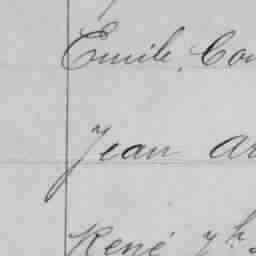 Emile Cou
Jean Ar
René Th